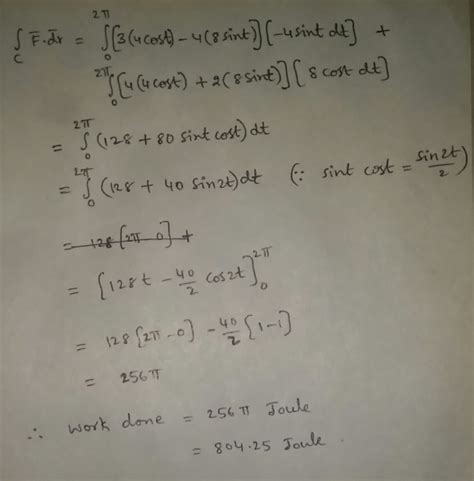 ∫_C F̄·dr̄ = ∫_0^{2π} [3(4cost) - 4(8sint)][-4sint dt] +
∫_0^{2π} [4(4cost) + 2(8sint)][8cost dt]
= ∫_0^{2π} (128 + 80 sint cost) dt
= ∫_0^{2π} (128 + 40 sin2t) dt (∵ sint cost = sin2t/2)
= 128 [2π - 0] +
= [128t - 40/2 cos2t]_0^{2π}
= 128 [2π - 0] - 40/2 [1-1]
= 256π
∴ work done = 256π Joule
= 804.25 Joule.